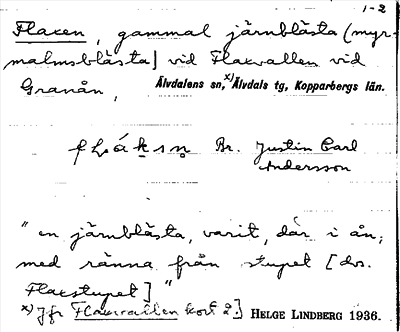 1-2
Flaxen, gammal järnblästa (myr-
malmsblästa) vid Flaxvallen vid
Granån, Älvdalens sn, x) Älvdals tg, Kopparbergs län.
Br. Justin Carl
Andersson
"en järnblästa, varit, där i ån,
med ränna från stupet [dvs.
Flaxstupet]"
x) Jfr Flaxvallen kort 2.] HELGE LINDBERG 1936.